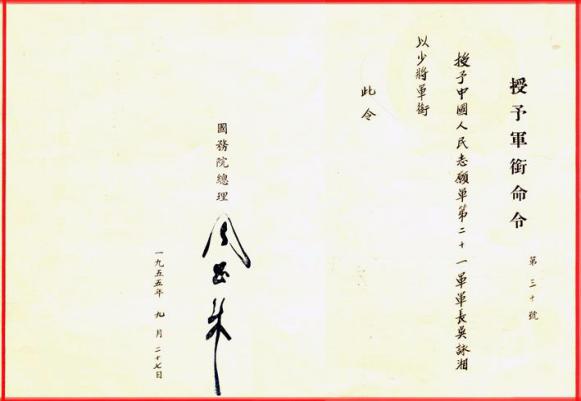 授予軍銜命令
第三十號
授予中國人民志願軍第二十一軍軍長吳詠湘
以少將軍銜
此令
國務院總理
周恩來
一九五五年九月二十七日